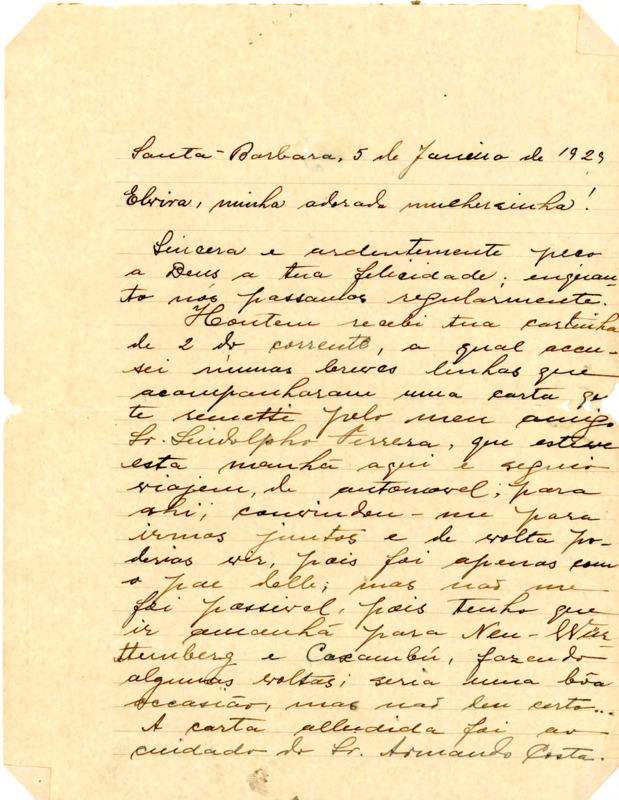 Santa-Barbara, 5 de Janeiro de 1929
Elvira, minha adorada mulhersinha!
Sincera e ardentemente peço
a Deus a tua felicidade; enquan-
to nós passamos regularmente.
Hontem recebi tua cartinha
de 2 do corrente, a qual accu-
sei n'umas breves linhas que
acompanharam uma carta q̃
te remetti pelo meu amigo
Sr. Lindolpho Ferrera, que esteve
esta manhã aqui e seguio
viajem, de automovel, para
ahi; convindou-me para
irmos juntos e de volta po-
derias vir, pois foi apenas com
o pae delle; mas não me
foi possivel, pois tenho que
ir amanhã para Neu-Wür-
ttemberg e Caxambú, fazendo
algumas voltas; seria uma bôa
occasião, mas não deu certo...
A carta alludida foi ao
cuidado do Sr. Armando Costa.